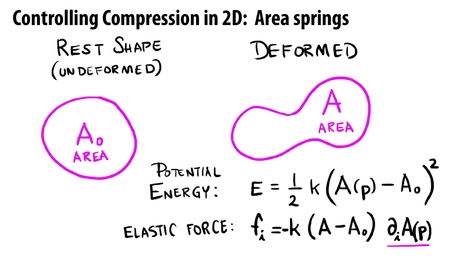 Controlling Compression in 2D: Area springs
REST SHAPE
(UNDEFORMED)
DEFORMED
A₀
AREA
A
AREA
POTENTIAL
ENERGY: E = 1/2 k (A(p) - A₀)²
ELASTIC FORCE: fᵢ = -k (A - A₀) ∂ᵢA(p)